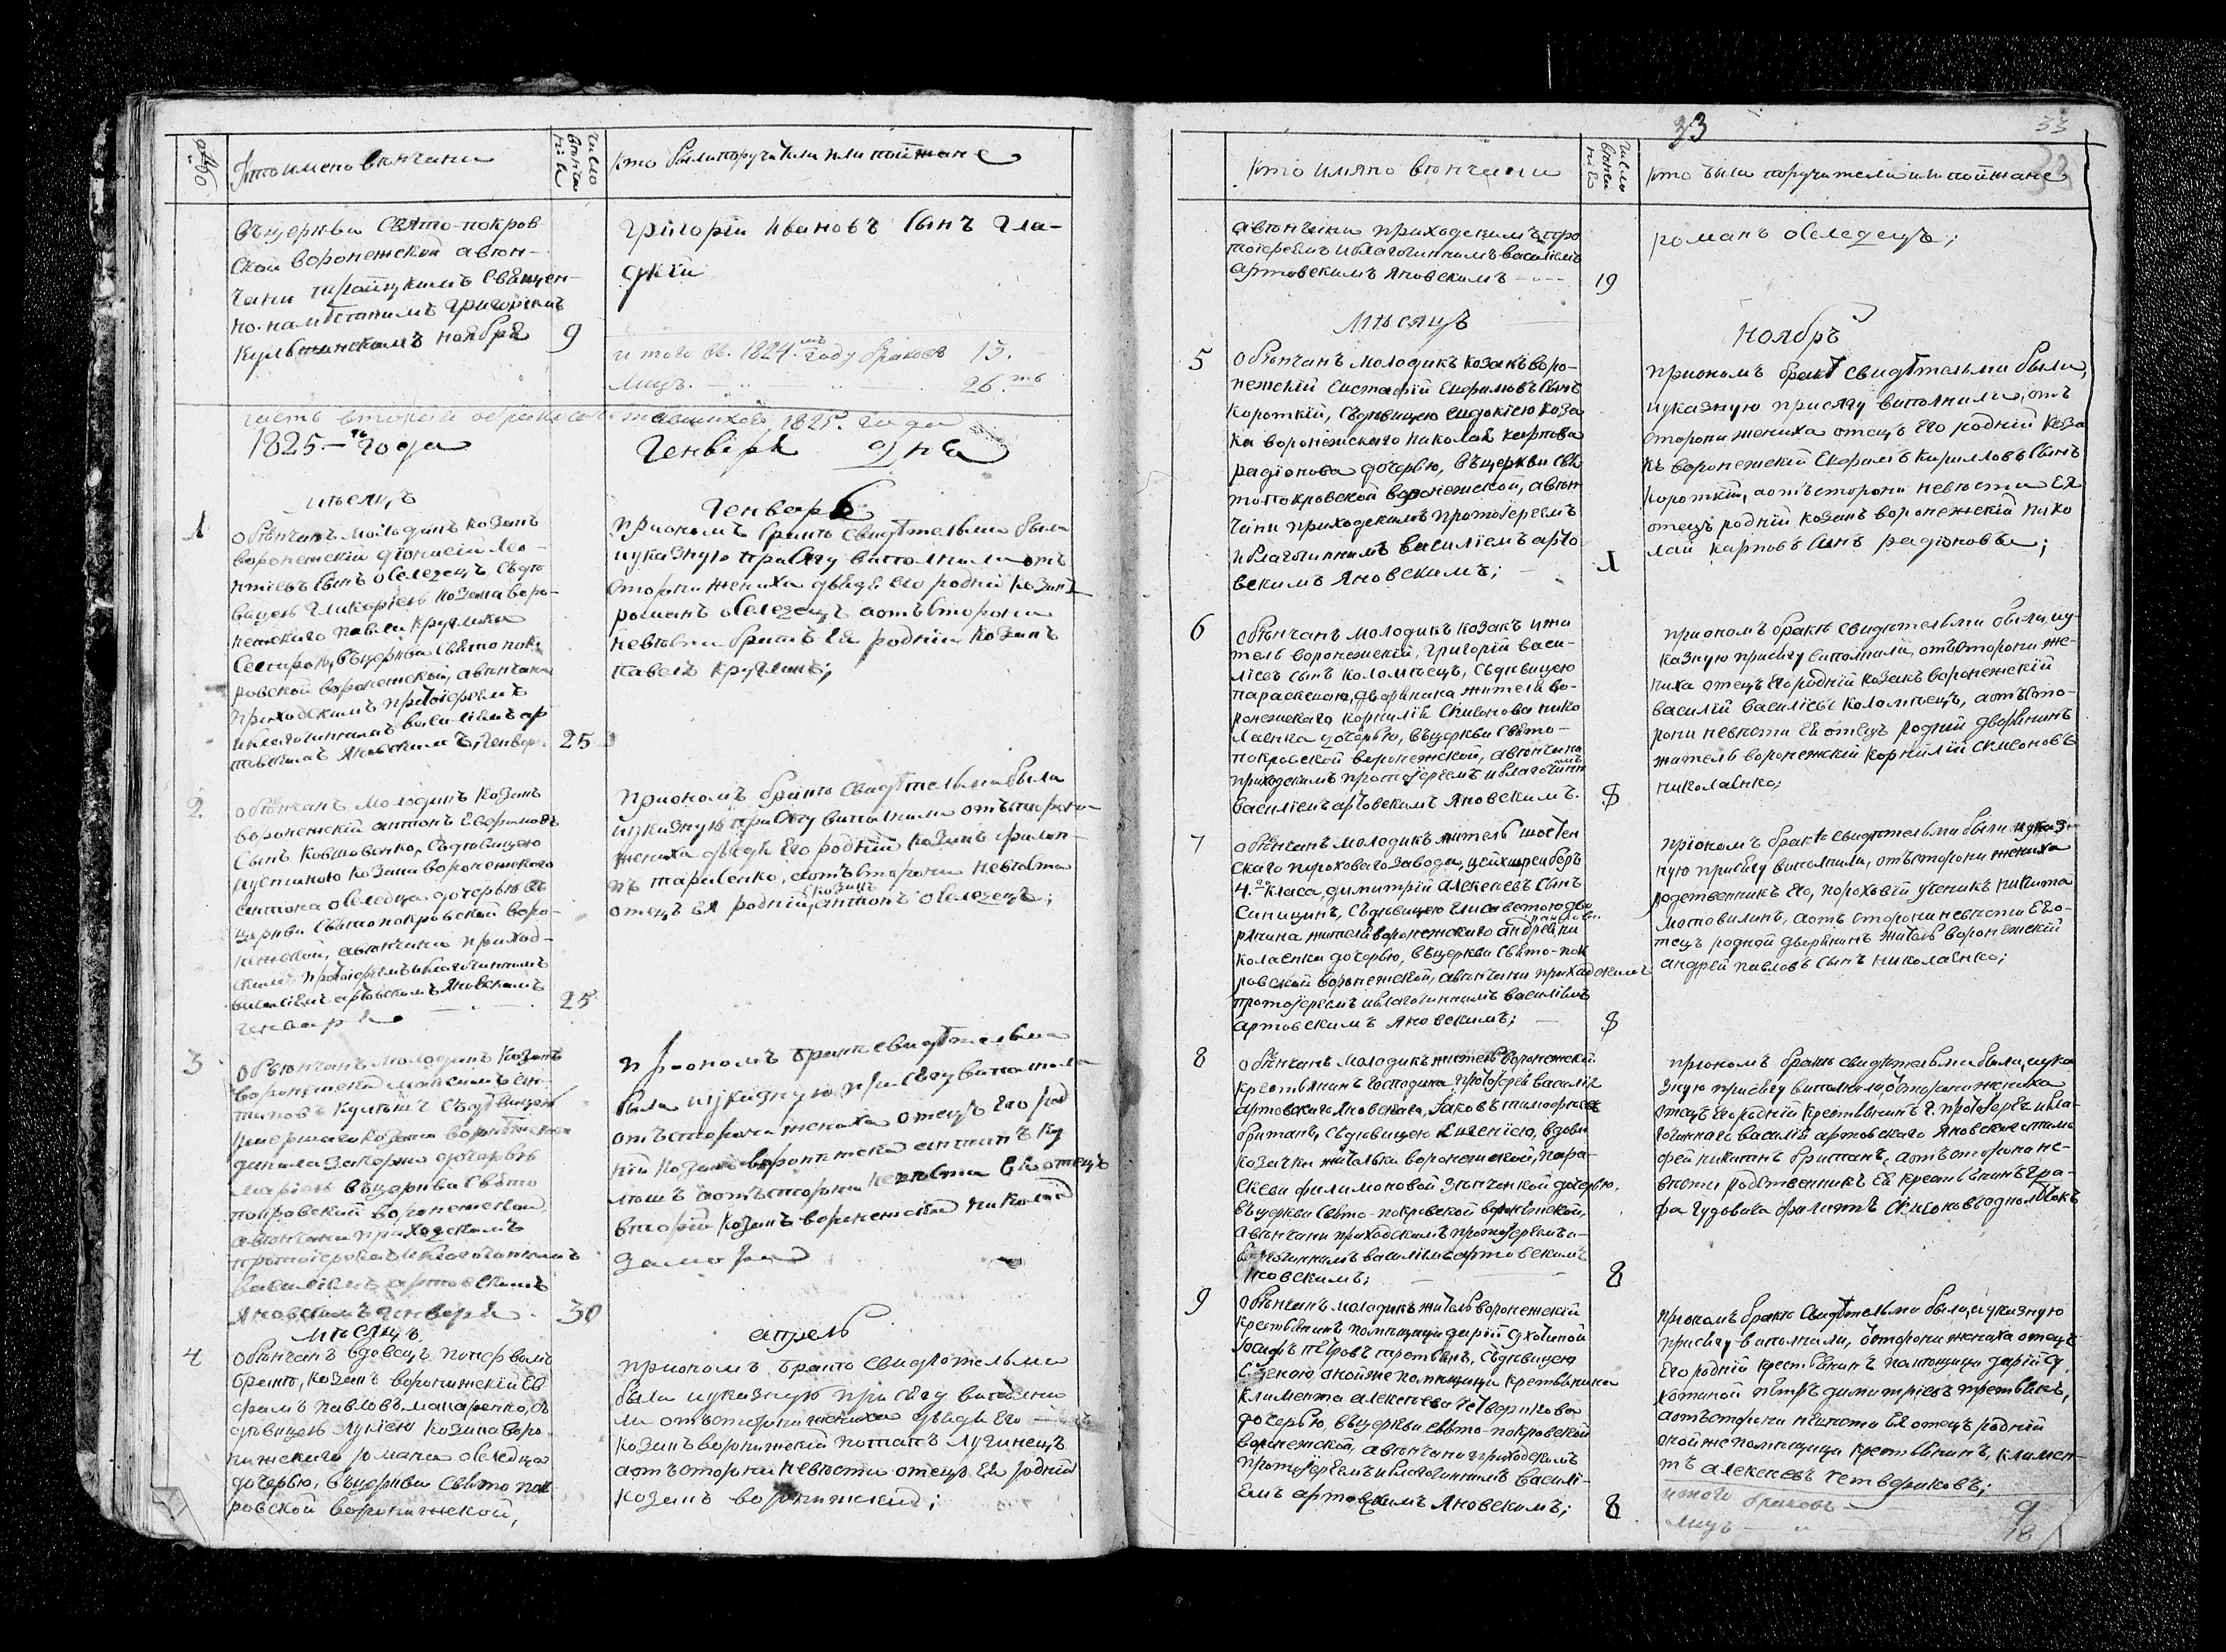 Кто имено венчани
число венча нія
кто были поручители или поизжане
въ церкви свято-покров
ской воронежской а вѣн-
чани троицкимъ священ-
но-намѣстникомъ григоріемъ
ноября 9
григорій Ивановъ сынъ гла-
дкій
итого въ 1824.мъ году браковъ 13.
лицъ. 26.ть
часть вторая о бракосочетавшихся, 1825. года
1825.-го года
Генваря дня
мѣсяцъ
Генварь
1
обвѣнчанъ молодикъ козакъ
воронежскій діонисій лео-
нтіевъ сынъ оселедецъ съ дѣ
вицею гликеріею козака воро-
нежского павла кругляка
сестрою, въ церкви свято пок-
ровской воронежской, а вѣнчани
приходскимъ протоіереемъ
и благочиннымъ василіемъ ар
товскимъ Яновскимъ, генвар. 25
при ономъ бракѣ свидѣтельми были
и указную присягу виполнили отъ
сторони жениха дядя его родній козакъ
романъ оселедецъ а отъ сторони
невѣсти братъ ея родній козакъ
павелъ круглякъ;
2.
обвѣнчанъ молодикъ козакъ
воронежскій антонъ
сынъ съ дѣвицею
іустиною козака воронежского
антона оселедца дочерью въ
церкви свято покровской воро-
нежской, а вѣнчани приход-
скимъ протоіереемъ и благочиннымъ
василіемъ артовскимъ Яновскимъ
генваря 25
при ономъ бракѣ свидѣтельми были
и указную присягу виполнили отъ сторони
жениха дядя его родній козакъ филип-
пъ тарасенко, а отъ сторони невѣсти
отецъ ея родній козакъ антонъ оселедецъ;
3
обвѣнчанъ молодикъ козакъ
воронежскій максимъ ан-
типовъ съ дѣвицею
умершаго козака воронежского
данила дочерью
маріею въ церкви свято
покровской воронежской,
а вѣнчани приходскимъ
протоіереемъ и благочиннымъ
василіемъ артовскимъ
Яновскимъ генваря 30
при ономъ бракѣ свидѣтельми
были и указную присягу виполнили
отъ сторони жениха отецъ его род
ній козакъ воронежскій антипъ ку
а отъ сторони невѣсти ея отецъ
вторій козакъ воронежскій николай
мѣсяцъ
апрель
4
обвѣнчанъ вдовецъ по первомъ
бракѣ, козакъ воронежскій ев
фимъ павловъ макаренко, съ
дѣвицею козака воро-
нежского романа оселедца
дочерью, въ церкви свято пок
ровской воронежской,
при ономъ бракѣ свидѣтельми
были и указную присягу виполни
ли отъ сторони жениха дядя его
козакъ воронежскій потапъ лучинецъ
а отъ сторони невѣсти отецъ ея родній
козакъ воронежскій;
33
Кто имяно венчани
число венча нія
кто были поручители или поизжане
а вѣнчани приходскимъ про
тоіереемъ и благочиннымъ василіемъ
артовскимъ Яновскимъ 19
романъ оселедецъ;
Мѣсяцъ
Ноябрь
5
обвѣнчанъ молодикъ козакъ воро-
нежскій евстафій ефимовъ сынъ
короткій, съ дѣвицею евдокіею коза
ка воронежскаго николая карпова
радіонова дочерью, въ церкви свя
то покровской воронежской, а вѣн
чани приходскимъ протоіереемъ
и благочиннымъ василіемъ арто
вскимъ Яновскимъ; 1
при ономъ бракѣ свидѣтельми были,
и указную присягу виполнили, отъ
сторони жениха отецъ его родній коза
къ воронежскій ефимъ кирилловъ сынъ
короткій, а отъ сторони невѣсти ея
отецъ родній козакъ воронежскій нико
лай карповъ сынъ радіоновъ;
6
обвѣнчанъ молодикъ козакъ и жи
тель воронежскій, григорій васи-
ліевъ сынъ коломіецъ, съ дѣвицею
параскевою, дворянина жителя во-
ронежскаго корнилія симонова нико
лаенка дочерью, въ церкви свято-
покровской воронежской, а вѣнчани
приходскимъ протоіереемъ и благочинн
василіемъ артовскимъ Яновскимъ. 8
при ономъ бракѣ свидѣтельми были, и у-
казную присягу виполнили, отъ сторони же-
ниха отецъ его родній козакъ воронежскій
василій василіевъ коломіецъ, а отъ сто-
рони невѣсти ея отецъ родній дворянинъ
житель воронежскій корнилій симоновъ
николаенко;
7
обвѣнчанъ молодикъ житель шостен
скаго пороховаго завода, цейхшрейберъ
4.го класа, димитрій алексѣевъ сынъ
синицинъ, съ дѣвицею елисаветою дво
рянина жителя воронежскаго андрея павлова ни
колаенка дочерью, въ церкви свято-пок
ровской воронежской, а вѣнчани приходскимъ
протоіереемъ и благочиннымъ василіемъ
артовскимъ Яновскимъ; 8
при ономъ бракѣ свидѣтельми были и указ-
ную присягу виполнили, отъ сторони жениха
родственникъ его, пороховій ученикъ никита
мотовилинъ, а отъ сторони невѣсти ея о-
тецъ родной дворянинъ житель воронежскій
андрей павловъ сынъ николаенко;
8
обвѣнчанъ молодикъ житель воронежскій
крестьянинъ господина протоіерея василія
артовскаго Яновскаго, Іаковъ тимофѣевъ
бриганъ, съ дѣвицею евгеніею, вдови
козачки жительки воронежской, пара-
скеви филимоновой дочерью,
въ церкви свято-покровской воронежской,
а вѣнчани приходскимъ протоіереемъ и
благочиннымъ василіемъ артовскимъ
Яновскимъ; 8
при ономъ бракѣ свидѣтельми были, и ука
зную присягу виполнили, отъ сторони жениха
отецъ его родній крестьянинъ г. протоіерея и бла-
гочиннаго василія артовскаго Яновскаго тимо
фей никитинъ бриганъ, а отъ сторони не-
вѣсти родственникъ ея крестьянинъ гра-
фа гудовича филиппъ симоновъ
9
обвѣнчанъ молодикъ житель воронежскій
крестьянинъ помѣщици даріи сухотиной
Іосифъ петровъ третьякъ, съ дѣвицею
оной же помѣщици крестьянина
климента алексѣева четверикова
дочерью, въ церкви свято-покровской
воронежской, а вѣнчани приходскимъ
протоіереемъ и благочиннымъ василі-
емъ артовскимъ Яновскимъ; 8
при ономъ бракѣ свидѣтельми были, и указную
присягу виполнили, отъ сторони жениха отецъ
его родній крестьянинъ помѣщици даріи су
хотиной петръ димитріевъ третьякъ,
а отъ сторони невѣсти ея отецъ родній
оной же помѣщици крестьянинъ, климен-
тъ алексѣевъ четвериковъ;
итого браковъ 9
лицъ 18